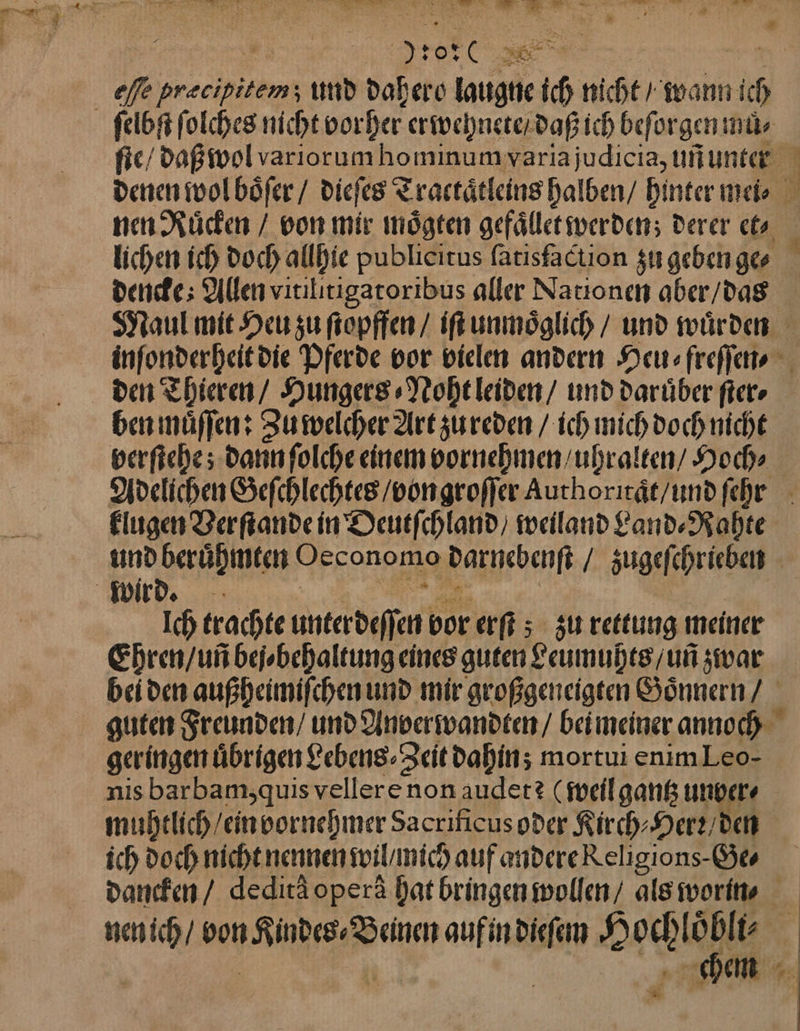 ):o:(
esse præcipitem; und dahero laugne ich nicht / wann ich
selbst solches nicht vorher erwehnete / daß ich besorgen mü⸗
ste / daß wol variorum hominum varia judicia, uñ unter
denen wol böser / dieses Tractätleins halben / hinter mei⸗
nen Rücken / von mir mögten gefället werden; derer et⸗
lichen ich doch allhie publicitus satisfaction zu geben ge⸗
dencke; Allen vitilitigatoribus aller Nationen aber / das
Maul mit Heu zu stopffen / ist unmöglich / und würden
insonderheit die Pferde vor vielen andern Heu⸗fressen⸗
den Thieren / Hungers⸗Noht leiden / und darüber ster⸗
ben müssen: Zu welcher Art zu reden / ich mich doch nicht
verstehe; dann solche einem vornehmen / uhralten / Hoch⸗
Adelichen Geschlechtes / von grosser Authorität / und sehr
klugen Verstande in Deutschland / weiland Land⸗Rahte
und berühmten Oeconomo darnebenst / zugeschrieben
wird.
Ich trachte unterdessen vor erst; zu rettung meiner
Ehren / uñ bei⸗behaltung eines guten Leumuhts / uñ zwar
bei den außheimischen und mir großgeneigten Gönnern /
guten Freunden / und Anverwandten / bei meiner annoch
geringen übrigen Lebens⸗Zeit dahin; mortui enim Leo-
nis barbam, quis vellere non audet? (weil gantz unver⸗
muhtlich / ein vornehmer Sacrificus oder Kirch⸗Herr / den
ich doch nicht nennen wil / mich auf andere Religions-Ge⸗
dancken / deditâ operâ hat bringen wollen / als worin⸗
nen ich / von Kindes⸗Beinen auf in diesem Hochlöbli⸗
chem